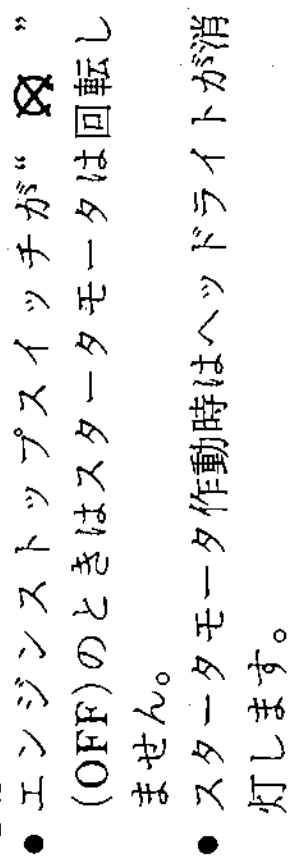 ●エンジンストップスイッチが“ ⊗ ”
(OFF)のときはスタータモータは回転し
ません。
●スタータモータ作動時はヘッドライトが消
灯します。